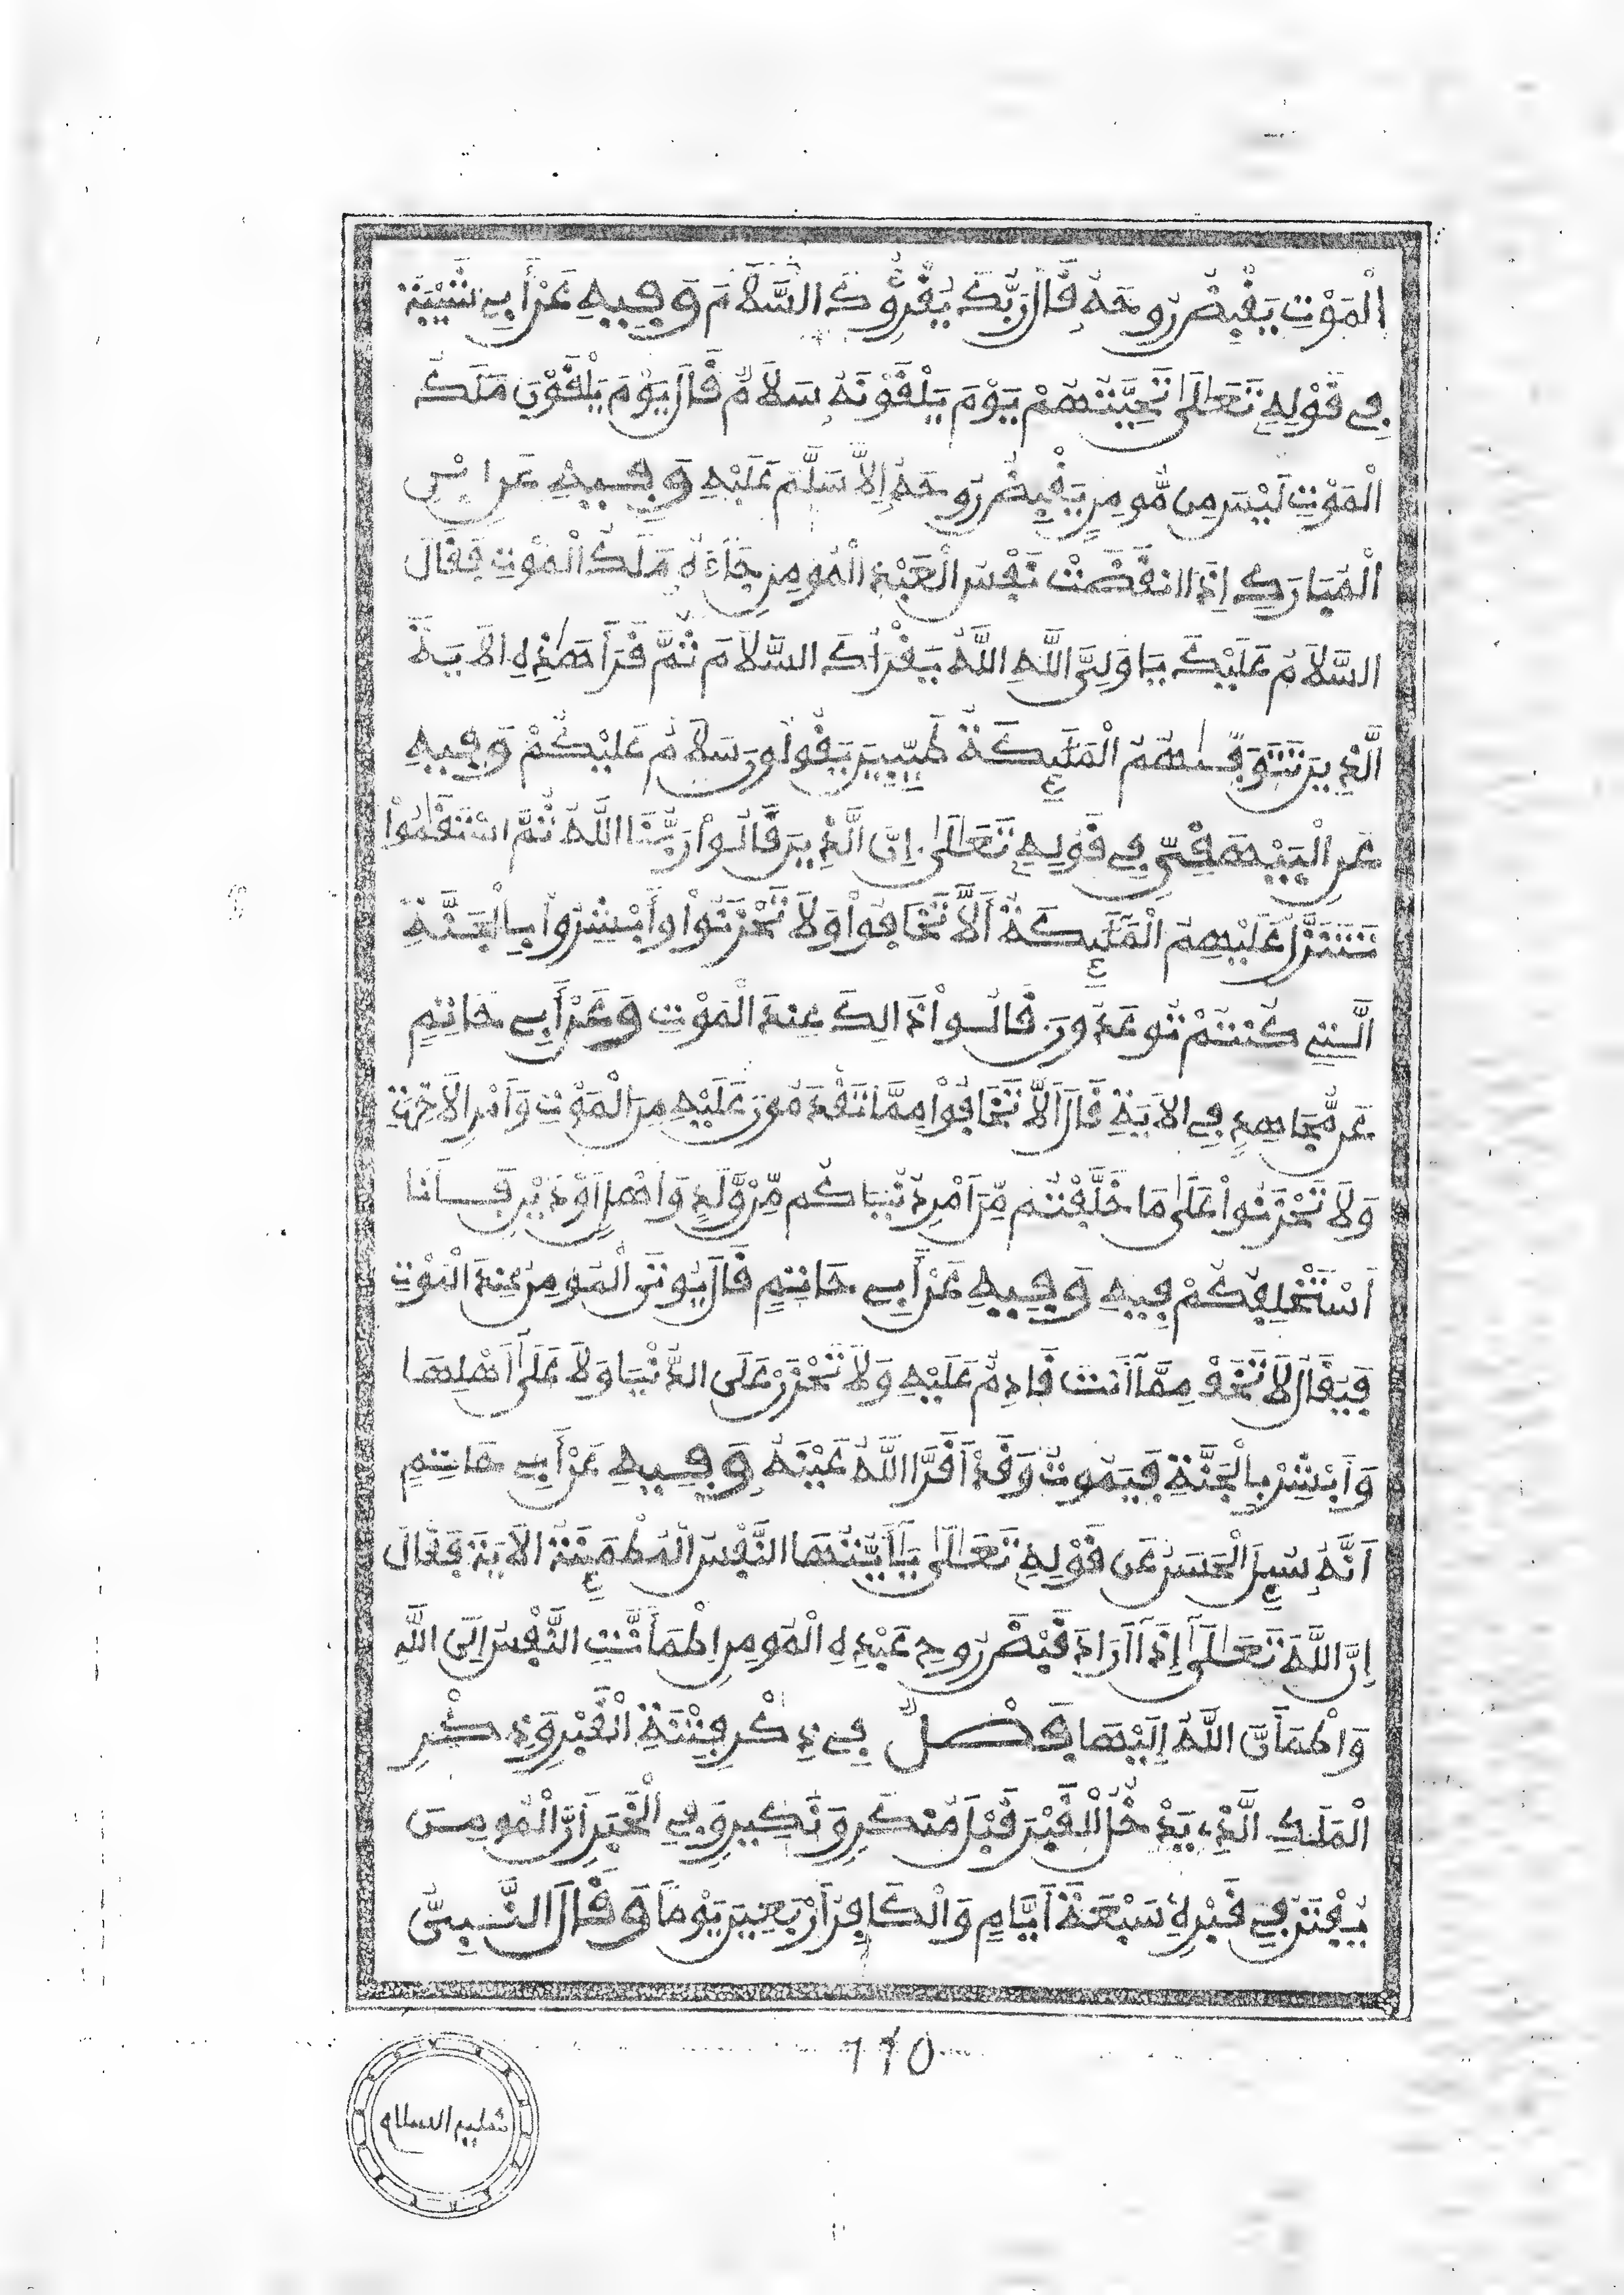 الْمَوْتِ يَقْبِضُ رُوحَهُ قَالَ رَبُّكَ يُقْرِؤُكَ السَّلَامَ وَفِيهِ عَنْ أَبِي شَيْبَةَ
فِي قَوْلِهِ تَعَالَى تَحِيَّتُهُمْ يَوْمَ يَلْقَوْنَهُ سَلَامٌ قَالَ يَوْمَ يَلْقَوْنَ مَلَكَ
الْمَوْتِ لَيْسَ مِن مُّومِنٍ يَقْبِضُ رُوحَهُ إِلَّا سَلَّمَ عَلَيْهِ وَفِيهِ عَنِ ابْنِ
الْمُبَارَكِ إِذَا انقَضَتْ نَفْسُ الْعَبْدِ الْمُومِنِ جَاءَهُ مَلَكُ الْمَوْتِ فَقَالَ
السَّلَامُ عَلَيْكَ يَا وَلِيَّ اللَّهِ اللَّهُ يَقْرَأُكَ السَّلَامَ ثُمَّ قَرَأَ هَٰذِهِ الْآيَةَ
الَّذِينَ تَتَوَفَّىٰهُمُ الْمَلَٰئِكَةُ طَيِّبِينَ يَقُولُونَ سَلَامٌ عَلَيْكُمْ وَفِيهِ
عَنِ الْبَيْهَقِيِّ فِي قَوْلِهِ تَعَالَى إِنَّ الَّذِينَ قَالُوا رَبُّنَا اللَّهُ ثُمَّ اسْتَقَٰمُوا
تَتَنَزَّلُ عَلَيْهِمُ الْمَلَٰئِكَةُ أَلَّا تَخَافُوا وَلَا تَحْزَنُوا وَأَبْشِرُوا بِالْجَنَّةِ
الَّتِي كُنتُمْ تُوعَدُونَ قَالُوا ذَالِكَ عِندَ الْمَوْتِ وَعَنْ أَبِي حَاتِمٍ
عَن مُّجَاهِدٍ فِي الْآيَةِ قَالَ أَلَّا تَخَافُوا مِمَّا تَقْدَمُونَ عَلَيْهِ مِنَ الْمَوْتِ وَأَمْرِ الْآخِرَةِ
وَلَا تَحْزَنُوا عَلَى مَا خَلَّفْتُم مِّنْ أَمْرِ دُنْيَاكُم مِّنْ وَّلَدٍ وَأَهْلٍ أَوْ دَيْنٍ فَأَنَا
أَسْتَخْلِفُكُمْ فِيهِ وَفِيهِ عَنْ أَبِي حَاتِمٍ قَالَ يُوتَى الْمُومِنُ عِندَ الْمَوْتِ
فَيُقَالُ لَا تَخَفْ مِمَّا أَنتَ قَادِمٌ عَلَيْهِ وَلَا تَحْزَنْ عَلَى الدُّنْيَا وَلَا عَلَى أَهْلِهَا
وَأَبْشِرْ بِالْجَنَّةِ فَيَمُوتُ وَقَدْ أَقَرَّ اللَّهُ عَيْنَهُ وَفِيهِ عَنْ أَبِي حَاتِمٍ
أَنَّهُ سُئِلَ الْحَسَنُ عَن قَوْلِهِ تَعَالَى يَا أَيَّتُهَا النَّفْسُ الْمُطْمَئِنَّةُ الْآيَةَ فَقَالَ
إِنَّ اللَّهَ تَعَالَى إِذَا أَرَادَ قَبْضَ رُوحِ عَبْدِهِ الْمُومِنِ اطْمَأَنَّتِ النَّفْسُ إِلَى اللَّهِ
وَاطْمَأَنَّ اللَّهُ إِلَيْهَا فَصْلٌ فِي ذِكْرِ فِتْنَةِ الْقَبْرِ وَذِكْرِ
الْمَلَكِ الَّذِي يَدْخُلُ الْقَبْرَ قَبْلَ مُنْكَرٍ وَنَكِيرٍ وَفِي الْخَبَرِ أَنَّ الْمُومِنَ
يُفْتَنُ فِي قَبْرِهِ سَبْعَةَ أَيَّامٍ وَالْكَافِرُ أَرْبَعِينَ يَوْمًا وَقَالَ النَّبِيُّ
115
تعليم الاسلام